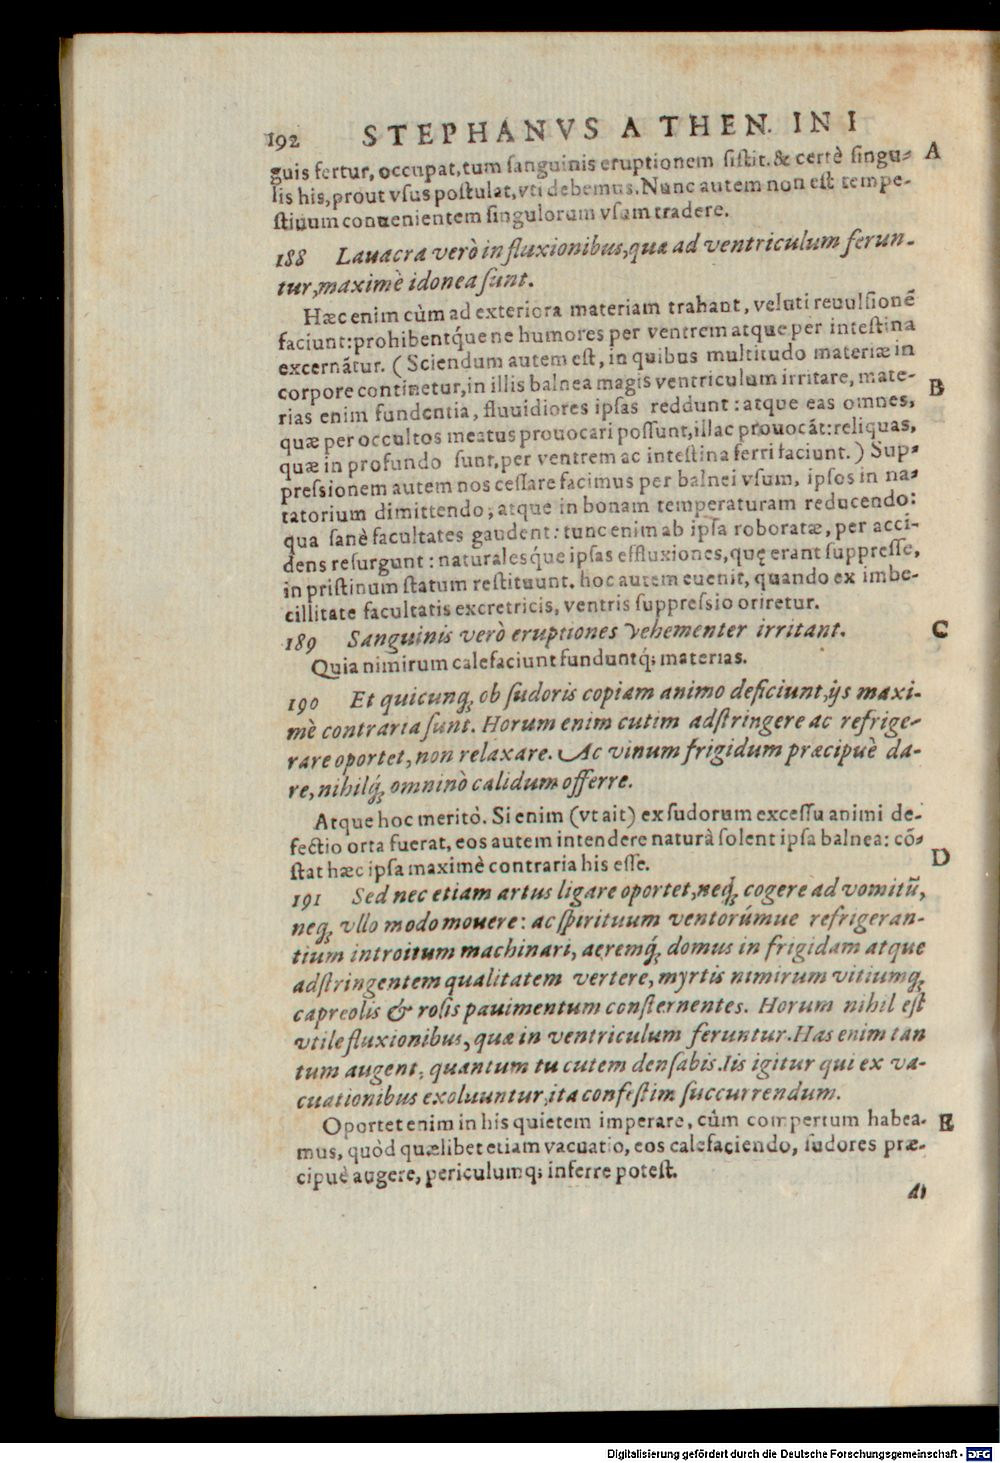 192 STEPHANVS ATHEN. IN I
guis fertur, occupat, tum sanguinis eruptionem sistit. & certè singu- A
lis his, prout vsus postulat, vti debemus. Nunc autem non est tempe-
stiuum conuenientem singulorum vsum tradere.
188 Lauacra verò in fluxionibus, quæ ad ventriculum ferun-
tur, maximè idonea sunt.
Hæc enim cùm ad exteriora materiam trahant, veluti reuulsionẽ
faciunt: prohibentq́ue ne humores per ventrem atque per intestina
excernãtur. (Sciendum autem est, in quibus multitudo materiæ in
corpore continetur, in illis balnea magis ventriculum irritare, mate- B
rias enim fundentia, fluuidiores ipsas reddunt: atque eas omnes,
quæ per occultos meatus prouocari possunt, illac prouocãt: reliquas,
quæ in profundo sunt, per ventrem ac intestina ferri faciunt.) Sup-
pressionem autem nos cessare facimus per balnei vsum, ipsos in na-
tatorium dimittendo; atque in bonam temperaturam reducendo:
qua sanè facultates gaudent: tunc enim ab ipsa roboratæ, per acci-
dens resurgunt: naturalesq́ue ipsas effluxiones, quę erant suppresse,
in pristinum statum restituunt. hoc autem euenit, quando ex imbe-
cillitate facultatis excretricis, ventris suppressio oriretur.
189 Sanguinis verò eruptiones vehementer irritant. C
Quia nimirum calefaciunt funduntq; materias.
190 Et quicunq; ob sudoris copiam animo deficiunt, ijs maxi-
mè contraria sunt. Horum enim cutim adstringere ac refrige-
rare oportet, non relaxare. Ac vinum frigidum præcipuè da-
re, nihilq́; omninò calidum offerre.
Atque hoc meritò. Si enim (vt ait) ex sudorum excessu animi de-
fectio orta fuerat, eos autem intendere naturà solent ipsa balnea: cõ-
stat hæc ipsa maximè contraria his esse. D
191 Sed nec etiam artus ligare oportet, neq́; cogere ad vomitũ,
neq; vllo modo mouere: ac spirituum ventorúmue refrigeran-
tium introitum machinari, aeremq́; domus in frigidam atque
adstringentem qualitatem vertere, myrtis nimirum vitiumq;
capreolis & rosis pauimentum consternentes. Horum nihil est
vtile fluxionibus, quæ in ventriculum feruntur. Has enim tan
tum augent, quantum tu cutem densabis. Iis igitur qui ex va-
cuationibus exoluuntur, ita confestim succurrendum.
Oportet enim in his quietem imperare, cùm compertum habea- E
mus, quòd quælibet etiam vacuatio, eos calefaciendo, sudores præ-
cipuè augere, periculumq; inferre potest.
Digitalisierung gefördert durch die Deutsche Forschungsgemeinschaft - DFG